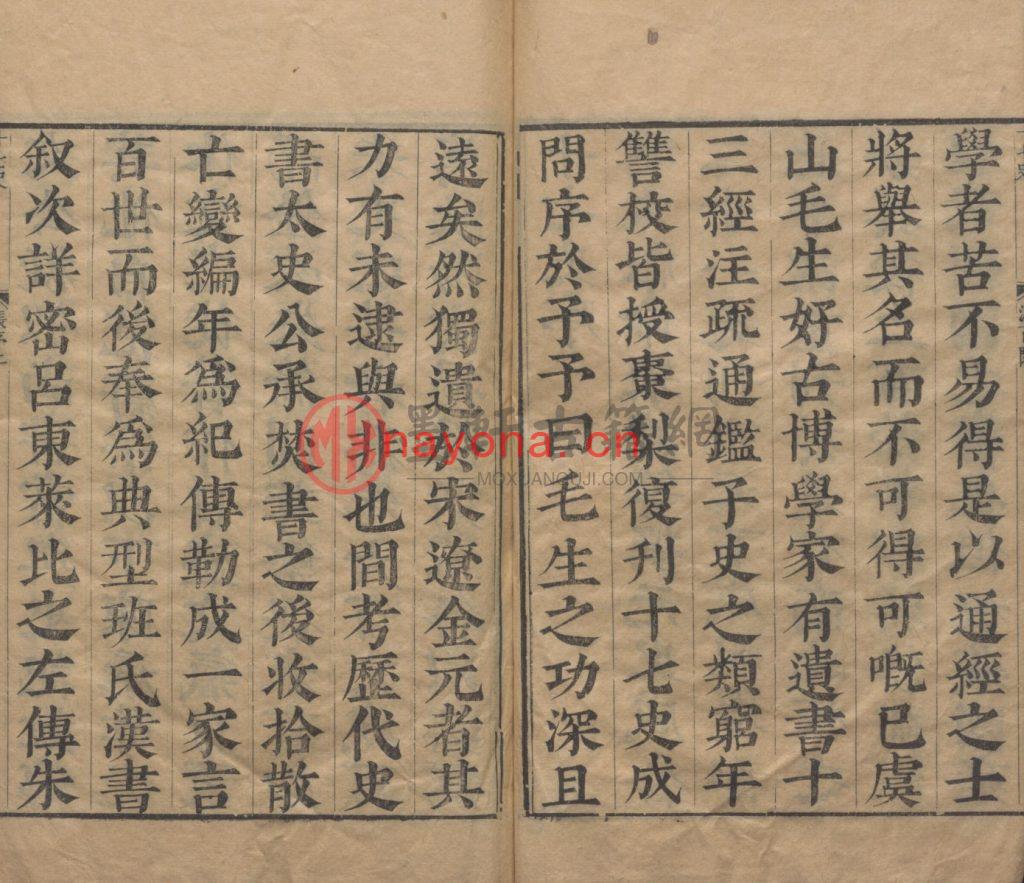 學者苦不易得是以通經之士
將舉其名而不可得可嘅已虞
山毛生好古博學家有遺書十
三經注疏通鑑子史之類窮年
讐校皆授棗梨復刊十七史成
問序於予予曰毛生之功深且
遠矣然獨遺於宋遼金元者其
力有未逮與非也間考歷代史
書太史公承焚書之後收拾散
亡變編年爲紀傳勒成一家言
百世而後奉爲典型班氏漢書
叙次詳密呂東萊比之左傳朱
nayona.cn
MOXUANGUJI.COM